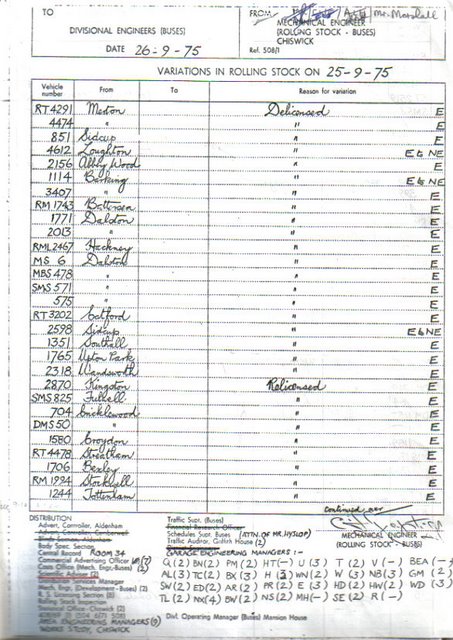 TO
FROM
DIVISIONAL ENGINEERS (BUSES)
MECHANICAL ENGINEER
(ROLLING STOCK - BUSES)
CHISWICK
DATE 26-9-75
Ref. 508/1
VARIATIONS IN ROLLING STOCK ON 25-9-75
Vehicle number From To Reason for variation
RT 4291 Merton Delicensed E
4474 " " E
851 Sidcup " E
4612 Loughton " E & NE
2156 Abbey Wood " E
1114 Barking " E & NE
3407 " " E
RM 1743 Battersea " E
1771 Dalston " E
2013 " " E
RML 2467 Hackney " E
MS 6 Dalston " E
MBS 478 " " E
SMS 571 " " E
575 " " E
RT 3202 Catford " E
2598 Sidcup " E & NE
1351 Southall " E
1765 Upton Park " E
2318 Wandsworth " E
2870 Kingston Relicensed E
SMS 825 Fulwell " E
704 Cricklewood " E
DMS 50 " " E
1580 Croydon " E
RT 4478 Streatham " E
1706 Bexley " E
RM 1294 Stockwell " E
1244 Tottenham " E
continued over
DISTRIBUTION
Advert. Controller, Aldenham
Advert. Controller, Camberwell
Body Spec. Section
Central Record ROOM 34
Commercial Advertising Officer
Costs Office (Mech. Engr.-Buses) (2)
Scientific Adviser (2)
Distribution Services Manager
Mech. Engr. (Development - Buses) (2)
R. S. Licensing Section (3)
Rolling Stock Inspection
Technical Office - Chiswick (2)
AREA ENGINEERING MANAGERS (9)
WORKS STUDY, CHISWICK
Traffic Supt. (Buses)
Financial Research Officer
Schedules Supt. (Buses) (ATTN. OF MR. HYSLOP)
Traffic Auditor, Griffith House (2)
MECHANICAL ENGINEER
(ROLLING STOCK - BUSES)
GARAGE ENGINEERING MANAGERS :-
Q (2) BN (2) PM (2) HT (-) U (3) T (2) V (-) BEA (-)
AL (3) TC (2) BX (3) H (3) WN (2) W (3) NB (3) GM (2)
SW (2) ED (2) AR (2) PR (2) E (3) HD (2) HW (2) WD (3)
TL (2) NX (4) BW (2) NS (2) MH (-) SE (2) R (-)
Divl. Operating Manager (Buses) Mansion House